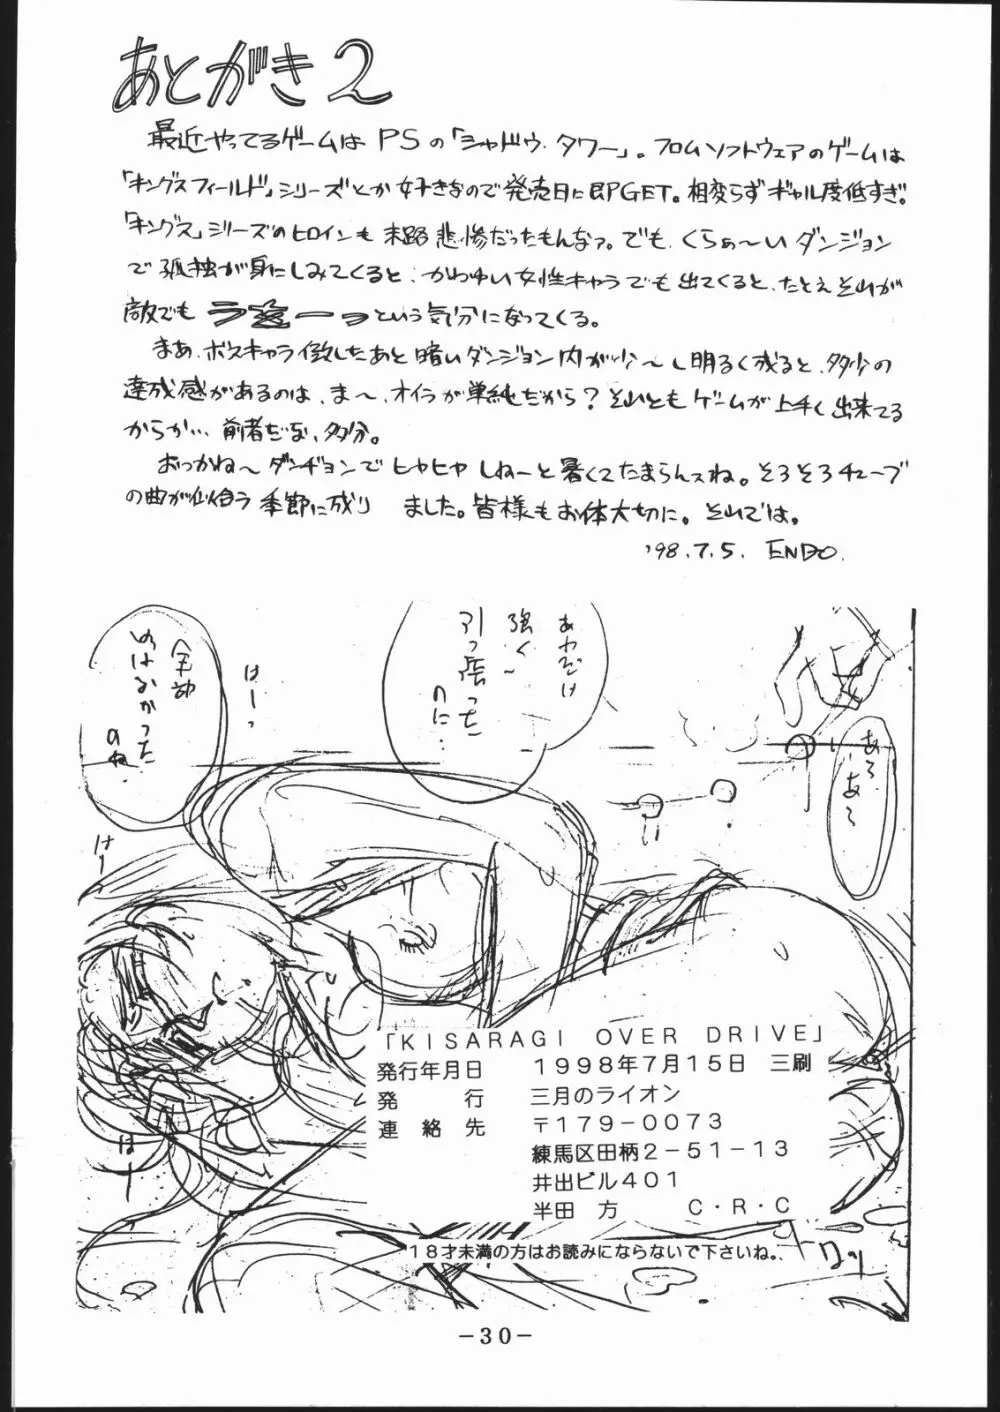 あとがき2
最近やってるゲームは PSの「シャドウ・タワー」。フロムソフトウェアのゲームは
「キングスフィールド」シリーズとか好きなので発売日に即GET。相変らずギャル度低すぎ。
「キングス」シリーズのヒロインも末路悲惨だったもんなァ。でも、くらぁ〜いダンジョン
で孤独が身にしみてくると、かわゆい女性キャラでも出てくると、たとえそれが
敵でも という気分になってくる。
まあ、ボスキャラ倒したあと暗いダンジョン内が少〜し明るく成ると、多少の
達成感があるのは、ま〜、オイラが単純だから?それともゲームが上手く出来てる
からか…前者だな、多分。
おっかね〜ダンジョンでヒヤヒヤしねーと暑くてたまらんスね。そろそろチューブ
の曲が似合う季節に成り ました。皆様もお体大切に。それでは。
'98.7.5. ENDO.
あれだけ
強く〜
引っ張った
のに‥
全部
ぬけなかった
のね‥
はーっ
あっ
あっ
はーっ
はーっ
「KISARAGI OVER DRIVE」
発行年月日 1998年7月15日 三刷
発 行 三月のライオン
連絡先 〒179-0073
練馬区田柄2-51-13
井出ビル401
半田 方 C・R・C
18才未満の方はお読みにならないで下さいね。
-30-